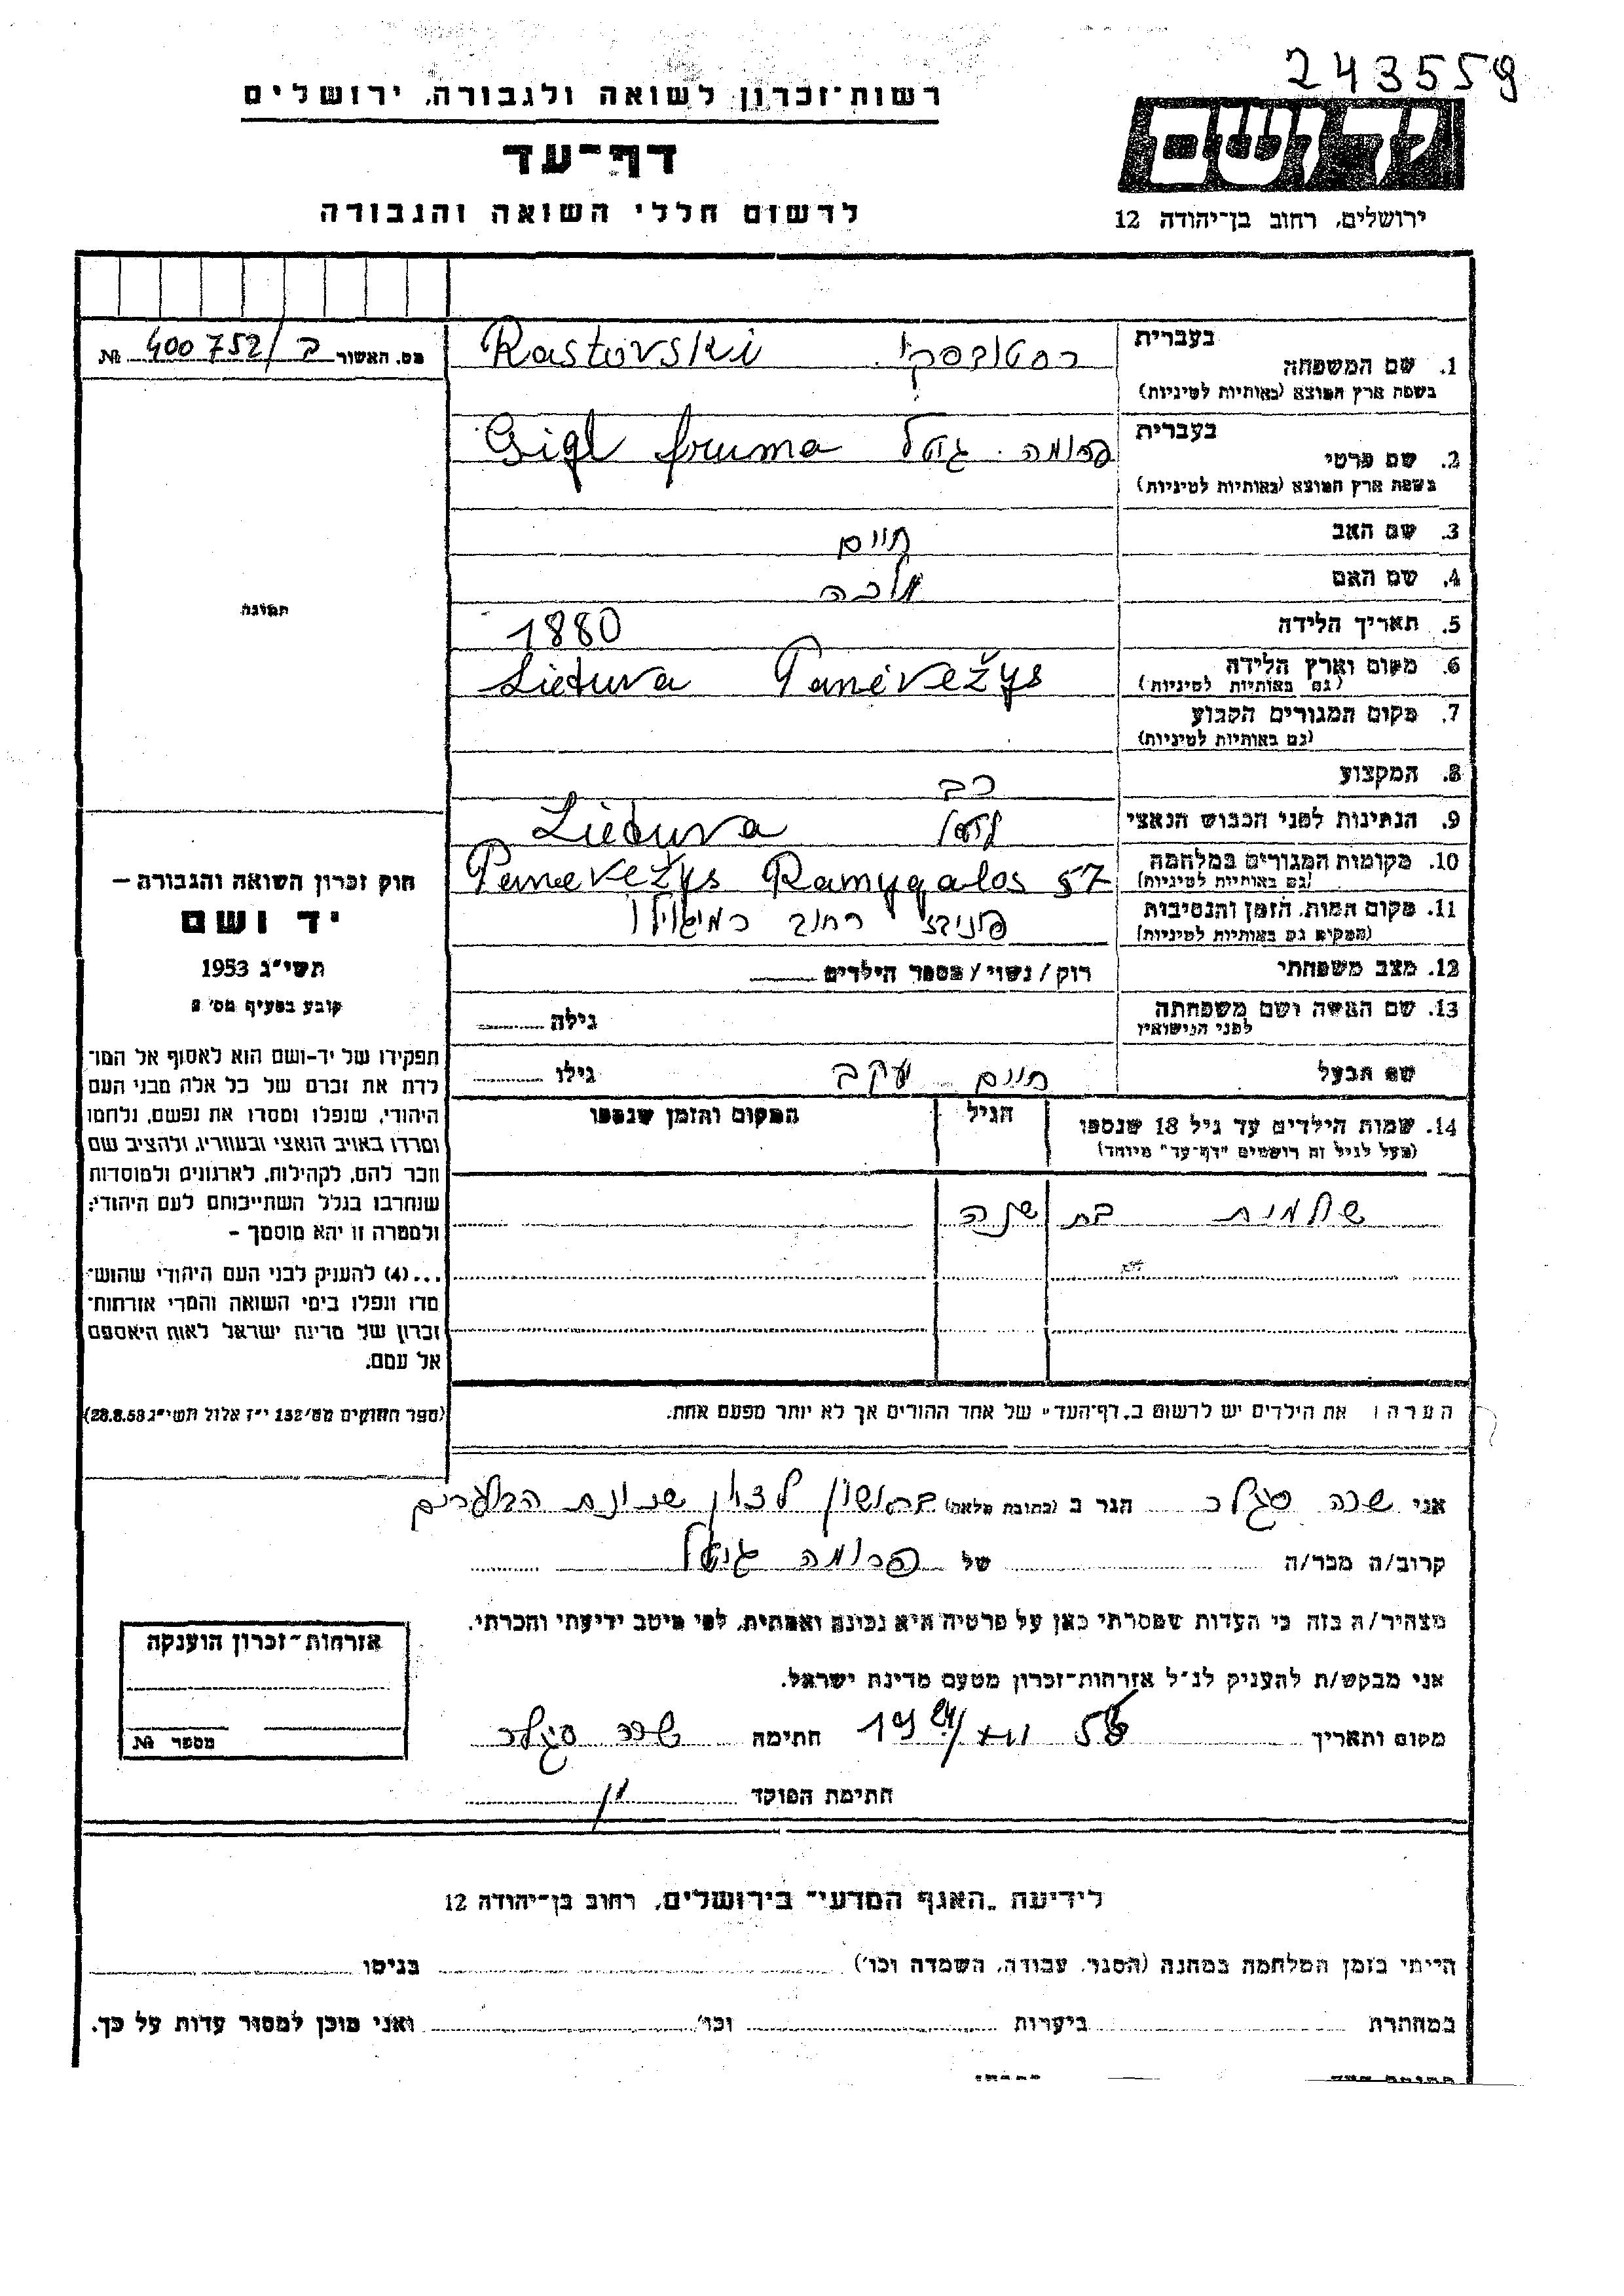 243559
רשות־זכרון לשואה ולגבורה, ירושלים
דף־עד
לרשום חללי השואה והגבורה
ידושם
ירושלים, רחוב בן־יהודה 12
מס. האשור ב/400752 №
בעברית
1. שם המשפחה רסטובסקי Rastovski
בשפת ארץ המוצא (באותיות לטיניות)
בעברית
2. שם פרטי פרומה גיטל Gigl fruma
בשפת ארץ המוצא (באותיות לטיניות)
3. שם האב חיים
4. שם האם מלכה
5. תאריך הלידה 1880
6. מקום וארץ הלידה Lietuva Panėvežys
(גם באותיות לטיניות)
7. מקום המגורים הקבוע
(גם באותיות לטיניות)
8. המקצוע רב
9. הנתינות לפני הכבוש הנאצי Lietuva
10. מקומות המגורים במלחמה Panevežys Ramygalos 57
(גם באותיות לטיניות)
11. מקום המות, הזמן והנסיבות פוניבז רחוב
(המקום גם באותיות לטיניות)
12. מצב משפחתי רוק/נשוי/מספר הילדים
13. שם האשה ושם משפחתה גילה
לפני הנישואין
שם הבעל חיים יעקב גילו
14. שמות הילדים עד גיל 18 שנספו הגיל המקום והזמן שנספו
(מעל לגיל זה רושמים "דף־עד" מיוחד)
שולמית בת שנה
הערה: את הילדים יש לרשום ב„דף־העד" של אחד ההורים אך לא יותר מפעם אחת.
תמונה
חוק זכרון השואה והגבורה –
יד ושם
תשי"ג 1953
קובע בסעיף מס' 2
תפקידו של יד-ושם הוא לאסוף אל המו־
לדת את זכרם של כל אלה מבני העם
היהודי, שנפלו ומסרו את נפשם, נלחמו
ומרדו באויב הנאצי ובעוזריו, ולהציב שם
וזכר להם, לקהילות, לארגונים ולמוסדות
שנחרבו בגלל השתייכותם לעם היהודי;
ולמטרה זו יהא מוסמך –
...(4) להעניק לבני העם היהודי שהוש־
מדו ונפלו בימי השואה והמרי אזרחות־
זכרון של מדינת ישראל לאות היאספם
אל עמם.
(ספר החוקים מס' 132 י"ז אלול תשי"ג 28.8.53)
אני שרה סגלר הגר ב (כתובת מלאה) בראשון לציון שכונת
קרוב/ה מכר/ה של פרומה גיטל
מצהיר/ה בזה כי העדות שמסרתי כאן על פרטיה היא נכונה ואמתית, לפי מיטב ידיעתי והכרתי.
אני מבקש/ת להעניק לנ"ל אזרחות־זכרון מטעם מדינת ישראל.
מקום ותאריך חתימה שרה סגלר
חתימת הפוקד
אזרחות־זכרון הוענקה
מספר №
לידיעת „האגף המדעי" בירושלים, רחוב בן־יהודה 12
הייתי בזמן המלחמה במחנה (הסגר, עבודה, השמדה וכו') בגיטו
במחתרת ביערות וכו' ואני מוכן למסור עדות על כך.